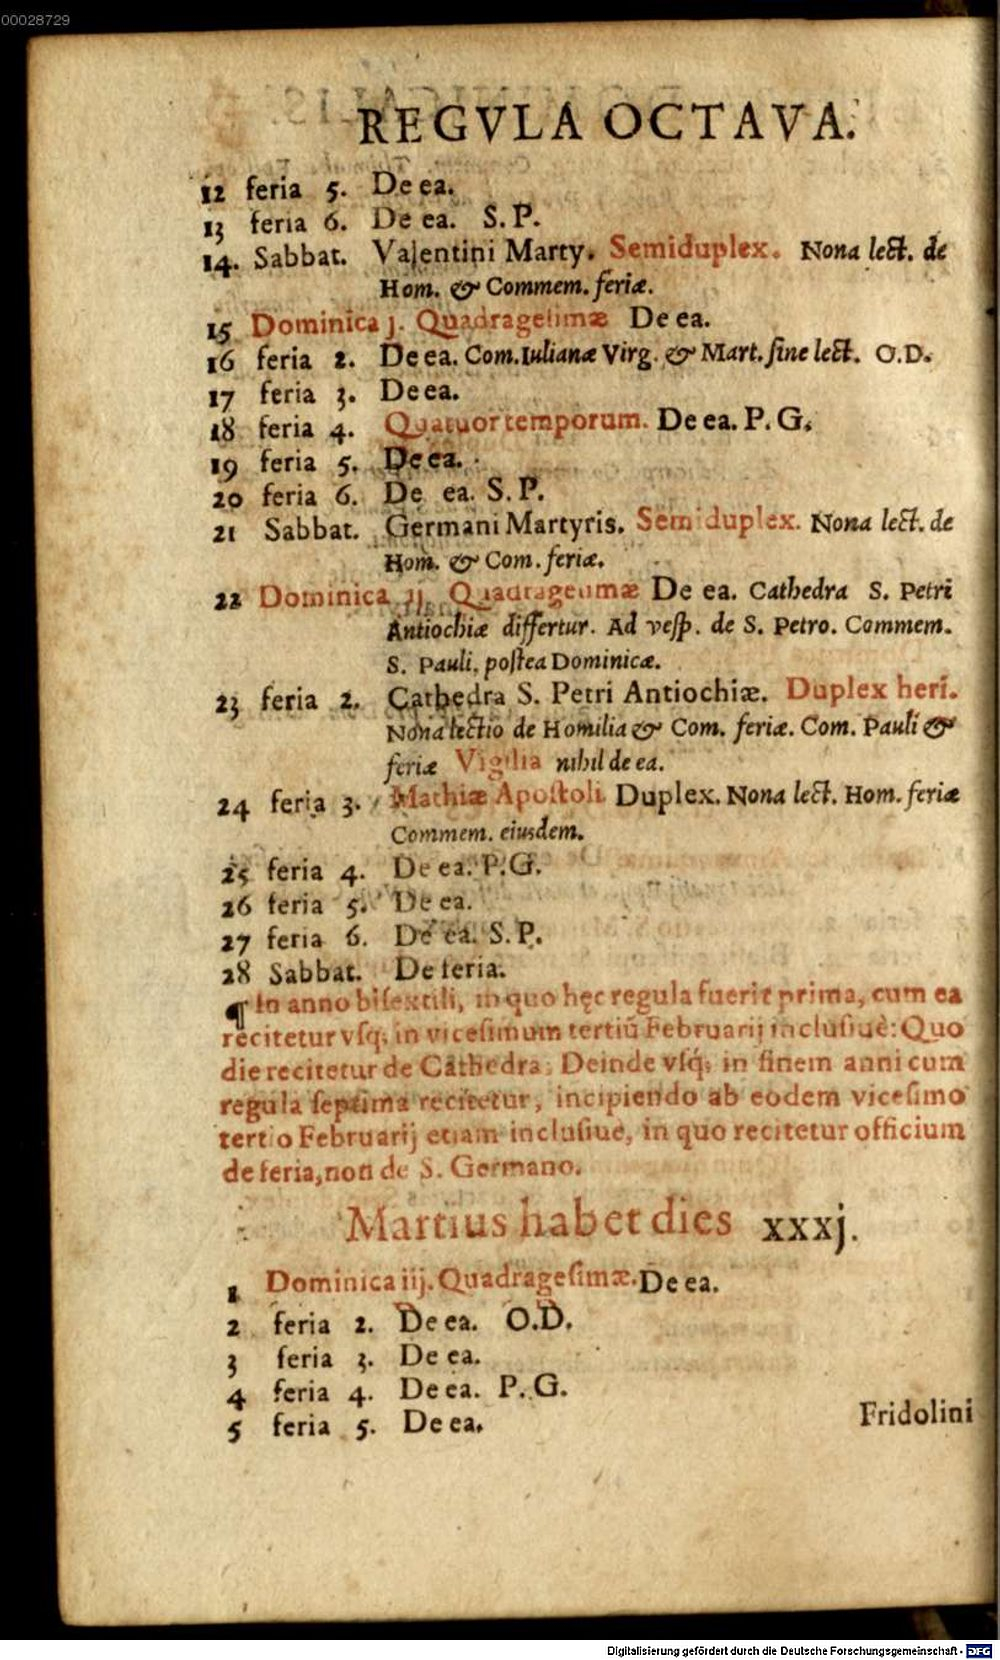 00028729
REGVLA OCTAVA.
12 feria 5. De ea.
13 feria 6. De ea. S. P.
14. Sabbat. Valentini Marty. Semiduplex. Nona lect. de
Hom. & Commem. feriæ.
15 Dominica j. Quadragesimæ De ea.
16 feria 2. De ea. Com. Iulianæ Virg. & Mart. sine lect. O.D.
17 feria 3. De ea.
18 feria 4. Quatuor temporum. De ea. P. G.
19 feria 5. De ea.
20 feria 6. De ea. S. P.
21 Sabbat. Germani Martyris. Semiduplex. Nona lect. de
Hom. & Com. feriæ.
22 Dominica ij. Quadragesimæ De ea. Cathedra S. Petri
Antiochiæ differtur. Ad vesp. de S. Petro. Commem.
S. Pauli, postea Dominicæ.
23 feria 2. Cathedra S. Petri Antiochiæ. Duplex heri.
Nona lectio de Homilia & Com. feriæ. Com. Pauli &
feriæ Vigilia nihil de ea.
24 feria 3. Mathiæ Apostoli Duplex. Nona lect. Hom. feriæ
Commem. eiusdem.
25 feria 4. De ea. P. G.
26 feria 5. De ea.
27 feria 6. De ea. S. P.
28 Sabbat. De feria.
¶ In anno bisextili, in quo hęc regula fuerit prima, cum ea
recitetur vsq; in vicesimum tertiũ Februarij inclusiuè: Quo
die recitetur de Cathedra, Deinde vsq; in finem anni cum
regula septima recitetur, incipiendo ab eodem vicesimo
tertio Februarij etiam inclusiue, in quo recitetur officium
de feria, non de S. Germano.
Martius habet dies xxxj.
1 Dominica iij. Quadragesimæ. De ea.
2 feria 2. De ea. O.D.
3 feria 3. De ea.
4 feria 4. De ea. P. G.
5 feria 5. De ea.
Fridolini
Digitalisierung gefördert durch die Deutsche Forschungsgemeinschaft - DFG